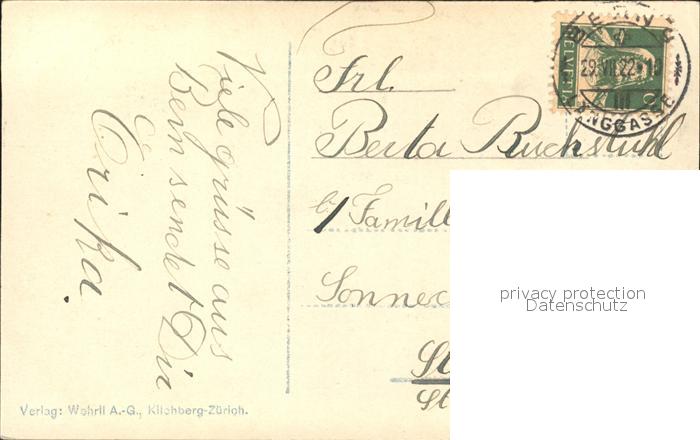 Viele grüsse aus
Bern sendet Dir
Erika.
Frl.
Berta Ruckstuhl
b/ Famill
Sonnec
St
St
HELVETIA
BERN
29.VII.22
III
LÄNGGASSE
privacy protection
Datenschutz
Verlag: Wehrli A.-G., Kilchberg-Zürich.